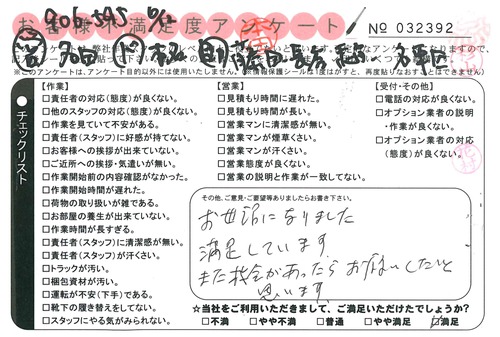 906-585 6/12
お客様不満足度アンケート
№ 032392
チェックリスト
【作業】
□責任者の対応(態度)が良くない。
□他のスタッフの対応(態度)が良くない。
□作業を見ていて不安がある。
□責任者(スタッフ)に好感が持てない。
□お客様への挨拶が出来ていない。
□ご近所への挨拶・気遣いが無い。
□作業開始前の内容確認がなかった。
□作業開始時間が遅れた。
□荷物の取り扱いが雑である。
□お部屋の養生が出来ていない。
□作業時間が長すぎる。
□責任者(スタッフ)に清潔感が無い。
□責任者(スタッフ)が汗くさい。
□トラックが汚い。
□梱包資材が汚い。
□運転が不安(下手)である。
□靴下の履き替えをしてない。
□スタッフにやる気がみられない。
【営業】
□見積もり時間に遅れた。
□見積もり時間が長い。
□営業マンに清潔感が無い。
□営業マンが煙草くさい。
□営業マンが汗くさい。
□営業態度が良くない。
□営業の説明と作業が一致してない。
【受付・その他】
□電話の対応が良くない。
□オプション業者の説明・作業が良くない。
□オプション業者の対応(態度)が良くない。
その他、ご意見・ご要望等ありましたらお書き下さい。
お世話になりました
満足しています
また機会があったらお願いしたいと
思います
☆当社をご利用いただきまして、ご満足いただけたでしょうか?
□不満 □やや不満 □普通 □やや満足 □満足